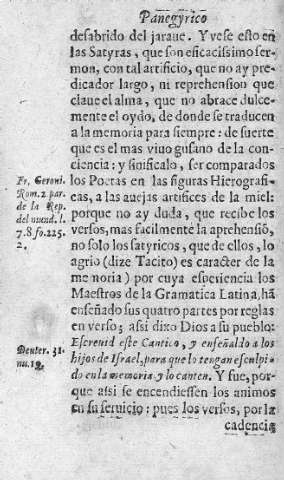 Panegyrico
desabrido del jaraue. Y vese esto en
las Satyras, que son eficacissimo ser-
mon, con tal artificio, que no ay pre-
dicador largo, ni reprehension que
claue el alma, que no abrace dulce-
mente el oydo, de donde se traducen
a la memoria para siempre: de suerte
que es el mas viuo gusano de la con-
ciencia: y sinificalo, ser comparados
los Poetas en las figuras Hierografi-
cas, a las auejas artifices de la miel:
porque no ay duda, que recibe los
versos, mas facilmente la aprehensiō,
no solo los satyricos, que de ellos, lo
agrio (dize Tacito) es caracter de la
memoria) por cuya esperiencia los
Maestros de la Gramatica Latina, hā
enseñado sus quatro partes por reglas
en verso; assi dixo Dios a su pueblo:
Escreuid este Cantico, y enseñaldo a los
hijos de Israel, para que lo tengan esculpi-
do en la memoria y lo canten. Y fue, por-
que assi se encendiessen los animos
en su seruicio: pues los versos, por la
cadencia
Fr. Geroni.
Rom. 2. par.
de la Rep.
del mund. l.
7. 8. fo. 225.
2.
Deuter. 31.
nu. 19.